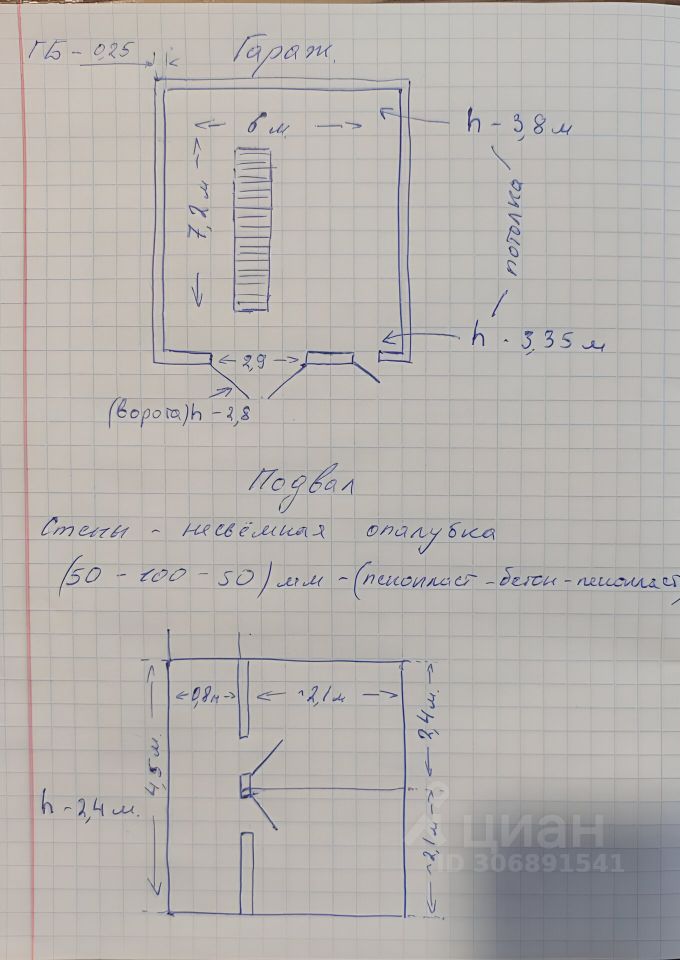 ГБ - 0,25
Гараж.
6 м.
h - 3,8 м
7,2 м
потолка
h - 3,35 м
2,9
(ворота) h - 2,8
Подвал
Стены - несъёмная опалубка
(50 - 100 - 50) мм - (пенопласт - бетон - пенопласт)
0,8м
~2,1м
2,4 м.
4,5 м.
h - 2,4 м.
~2,1м
циан
ID 306891541